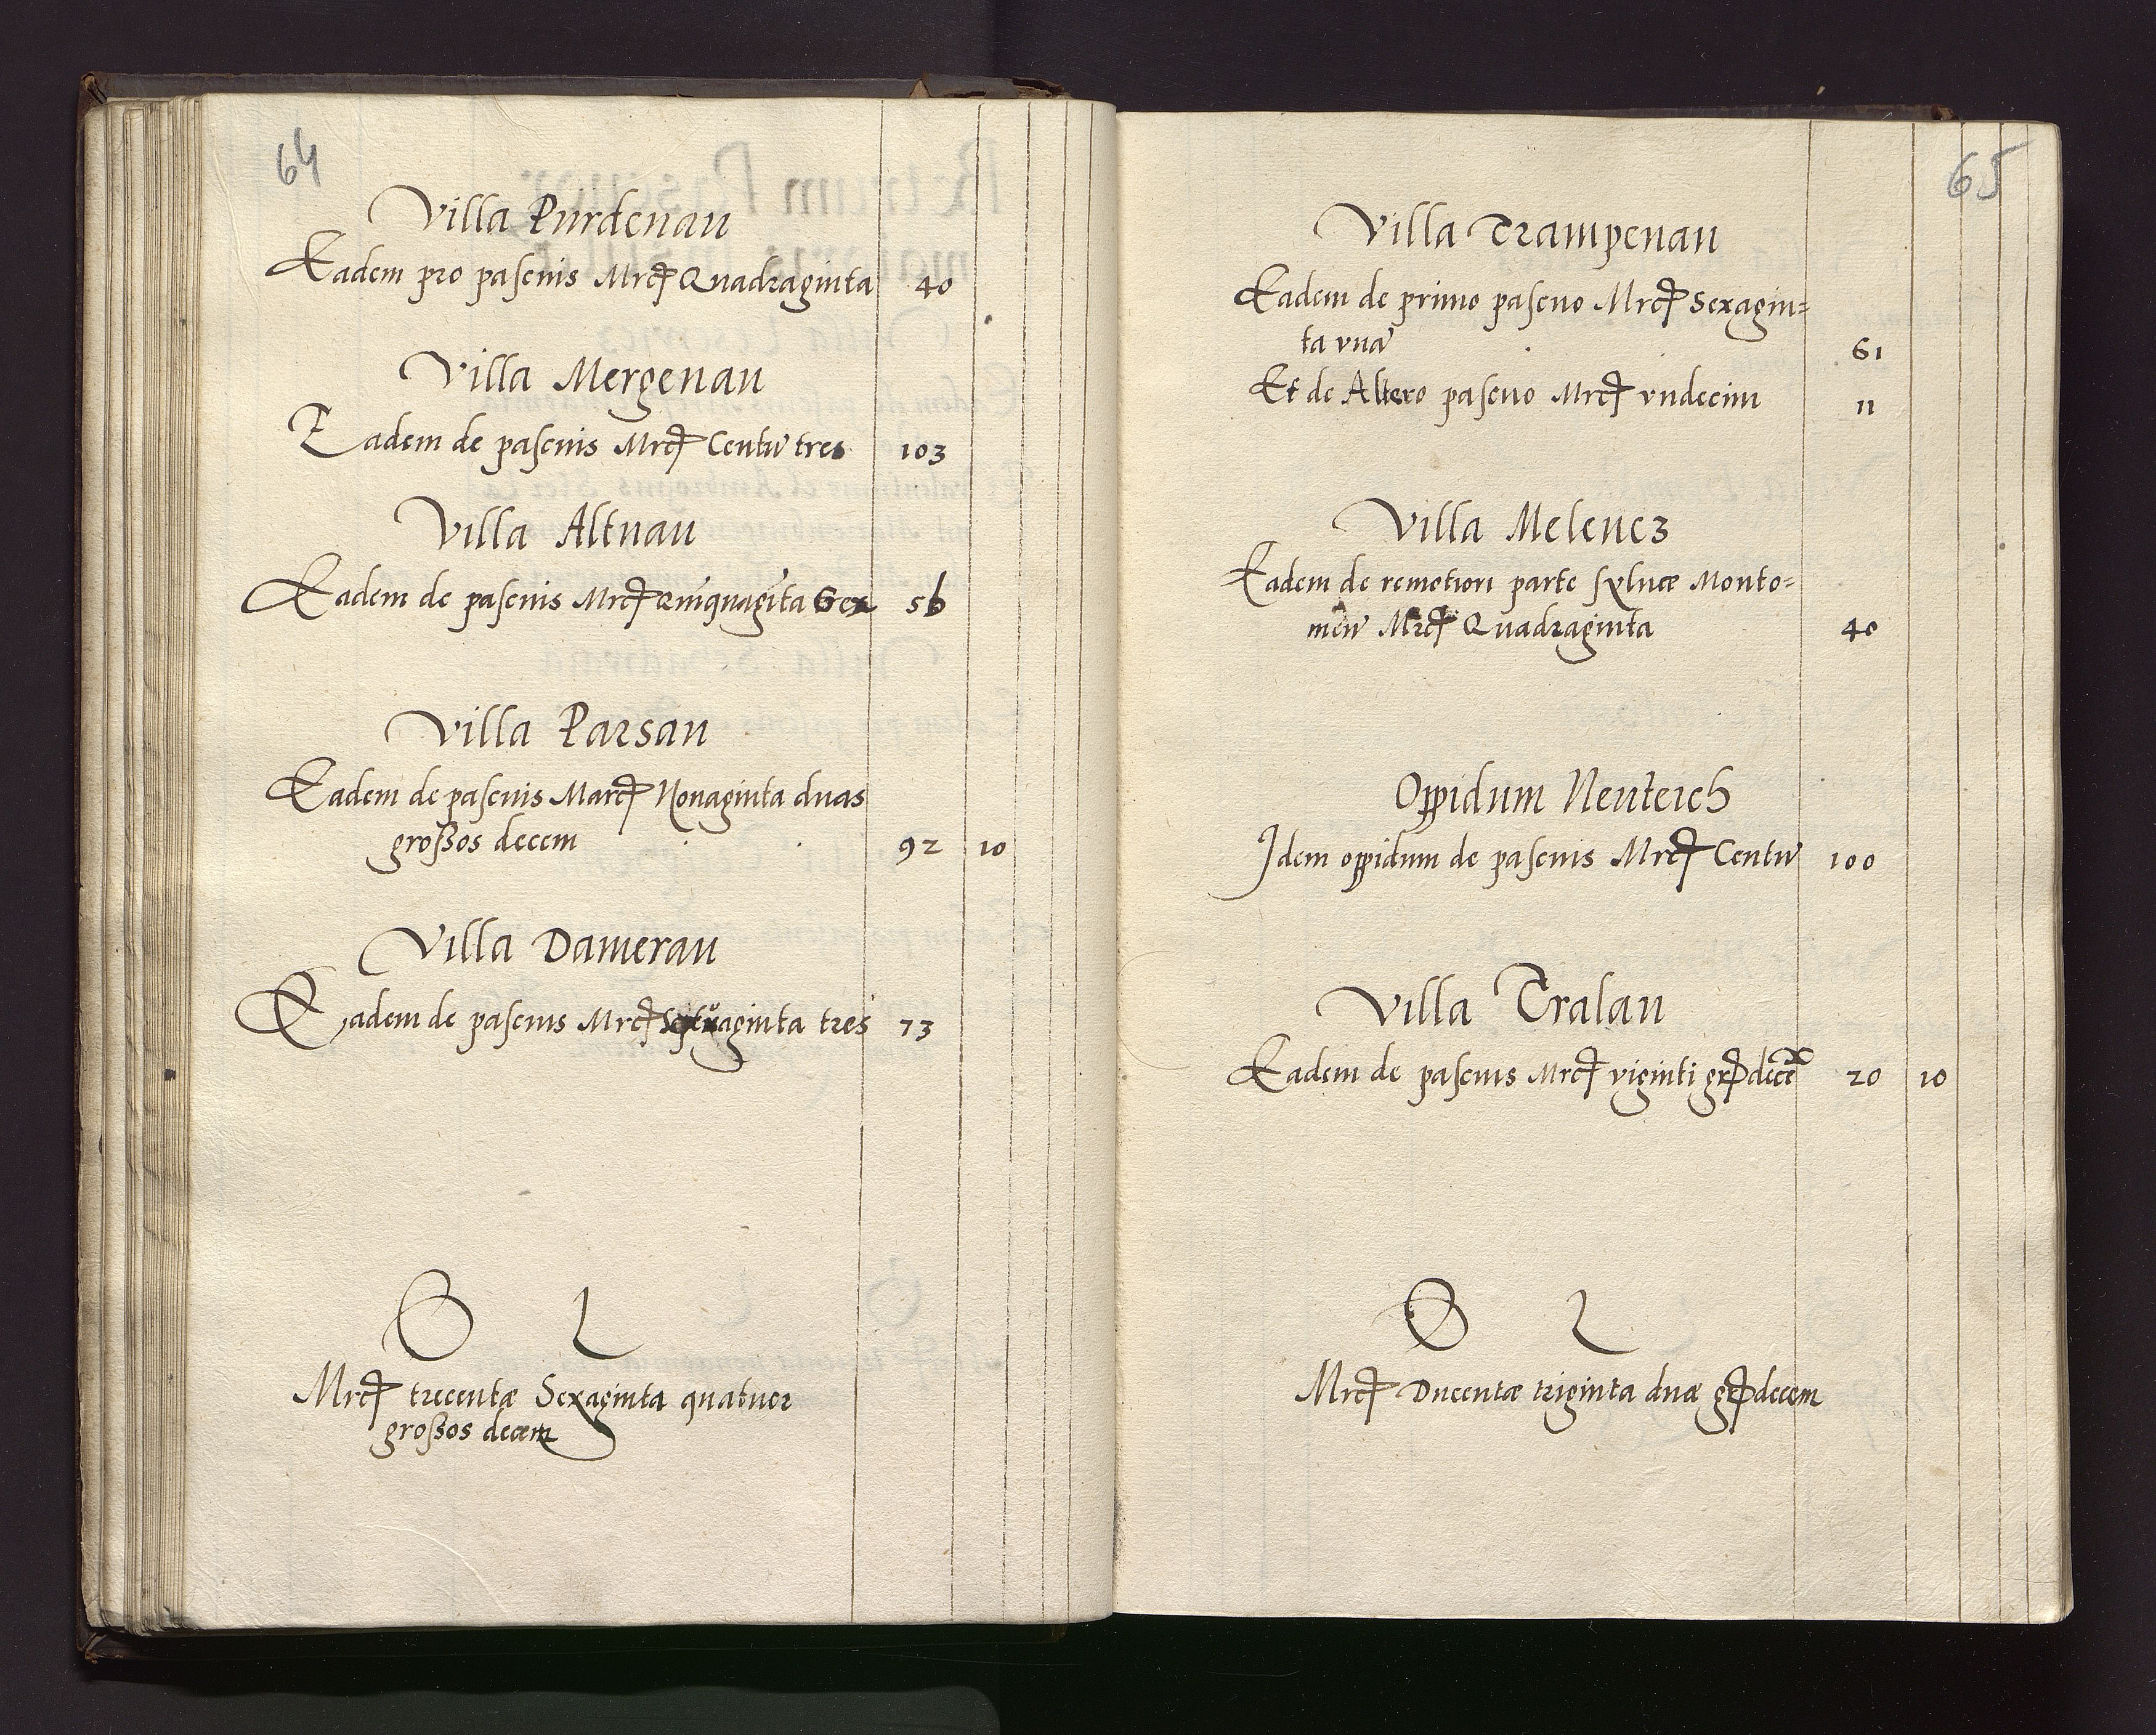 64
Villa Purdenau
Eadem pro pascuis Mrcꝭ Quadraginta 40
Villa Mergenau
Eadem de pascuis Mrcꝭ Centū tres 103
Villa Altnau
Eadem de pascuis Mrcꝭ Quīquagīta Sex 56
Villa Parsau
Eadem de pascuis Marcꝭ Nonaginta duas
großos decem 92 10
Villa Damerau
Eadem de pascuis Mrcꝭ Septuaginta tres 73
Mrcꝭ trecentæ Sexaginta quatuor
großos decem
65
Villa Trampenau
Eadem de primo pascuo Mrcꝭ Sexagin=
ta vnā 61
Et de Altero pascuo Mrcꝭ vndecim 11
Villa Melencz
Eadem de remotiori parte sylvæ Monto=
men Mrcꝭ Quadraginta 40
Oppidum Neuteich
Idem oppidum de pascuis Mrcꝭ Centū 100
Villa Tralau
Eadem de pascuis Mrcꝭ viginti grꝭ decē 20 10
Mrcꝭ Ducentæ triginta duæ grꝭ decem